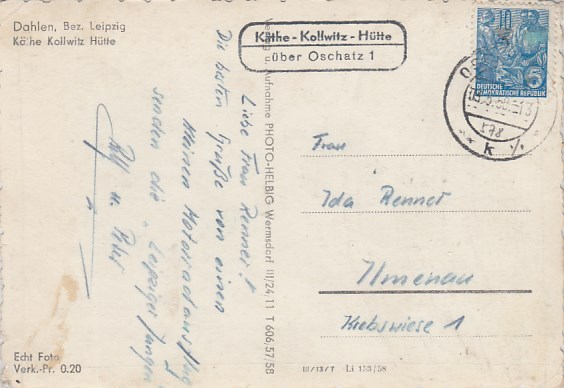 Dahlen, Bez. Leipzig
Käthe Kollwitz Hütte
Käthe-Kollwitz-Hütte
über Oschatz 1
DEUTSCHE
DEMOKRATISCHE REPUBLIK
5
k
Liebe Frau Renner!
Die besten Grüße von einem
kleinen Motorradausflug
senden die "Leipziger Jungen"
Rolf u. Peter
Verlag u. Aufnahme PHOTO-HELBIG Wermsdorf III/24/11 T 606,57/58
Frau
Ida Renner
Ilmenau
Krebswiese 1
Echt Foto
Verk.-Pr. 0.20
III/13/7 Li 153/58